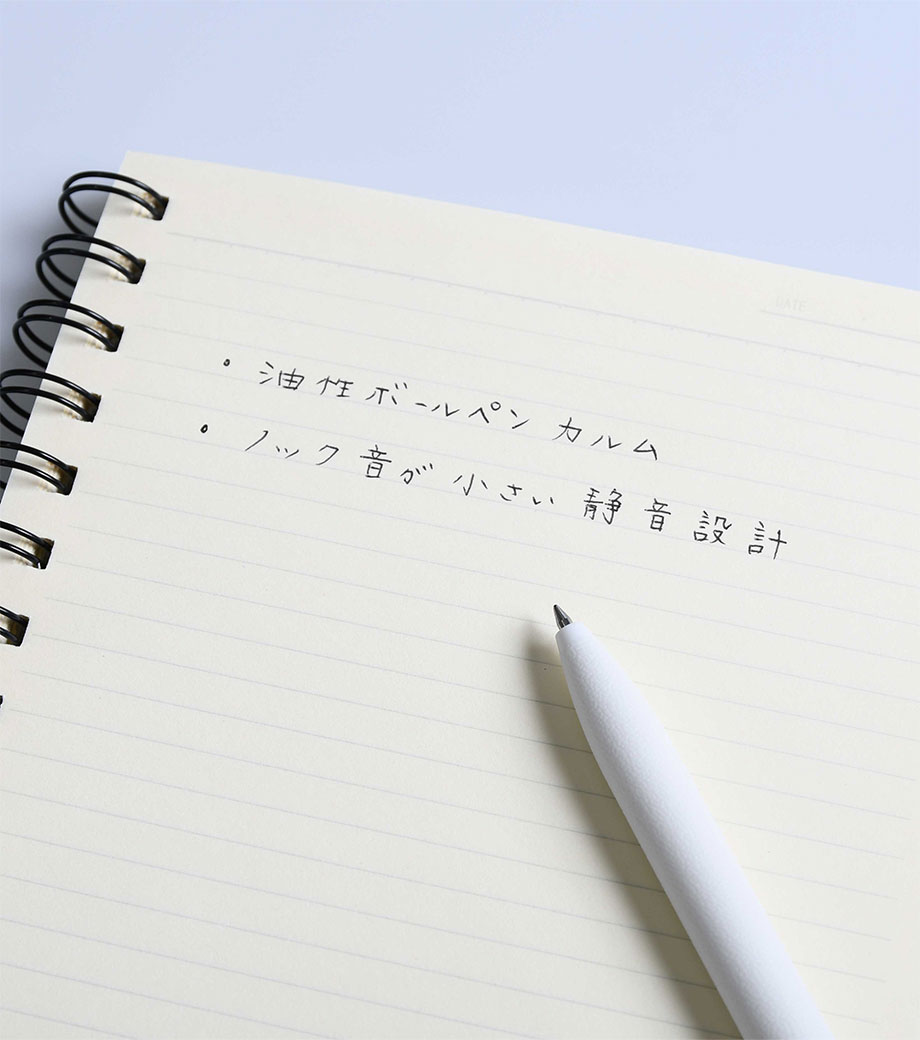 DATE
・油性ボールペン カルム
・ノック音が小さい静音設計